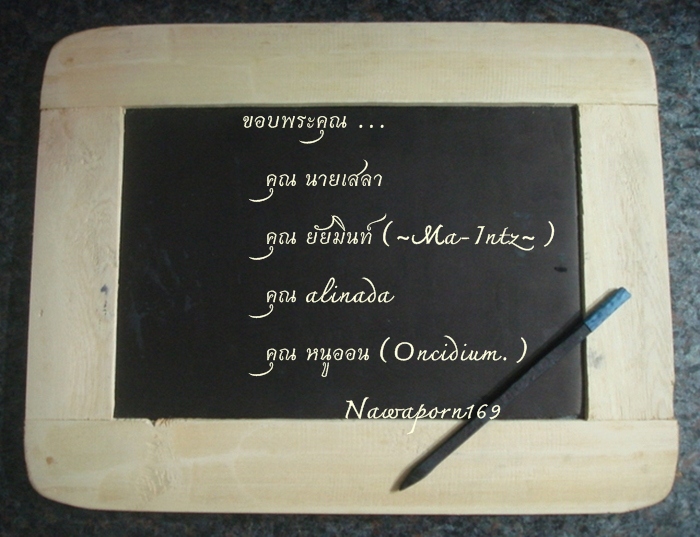 ขอบพระคุณ ...
คุณ นายเสลา
คุณ ยัยมินท์ (~Ma-Intz~ )
คุณ alinada
คุณ หนูออน (Oncidium. )
Nawaporn169